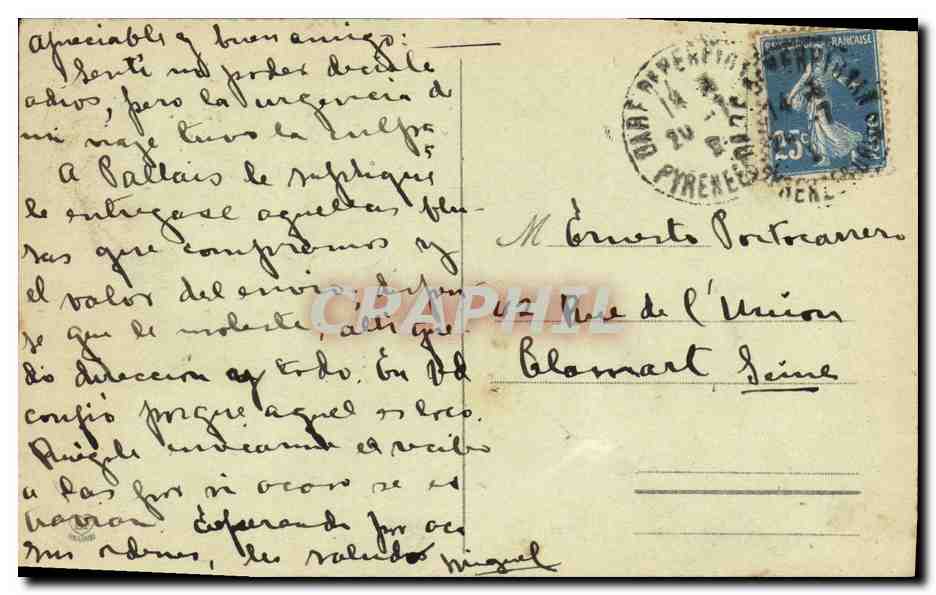 apreciable y buen amigo:
Sentí no poder decirle
adios, pero la urgencia de
mi viaje tuvo la culpa
A Pallais le supliqué
le entregase aquellas blu-
sas que compramos y
el valor del envio, dispen-
se que le moleste, allí que-
dó dirección y todo. En Vd
confió porque aquel es loco.
Ruégole enviearme el recibo
a las por si acaso se es
travian Esperando por aca
sus ordenes, le saluda
Miguel
GARE DE PERPIGNAN
PYRENEES
FRANÇAISE
25c
M Ernesto Portocarrero
42 Rue de l'Union
Clamart Seine
CPAPHIL